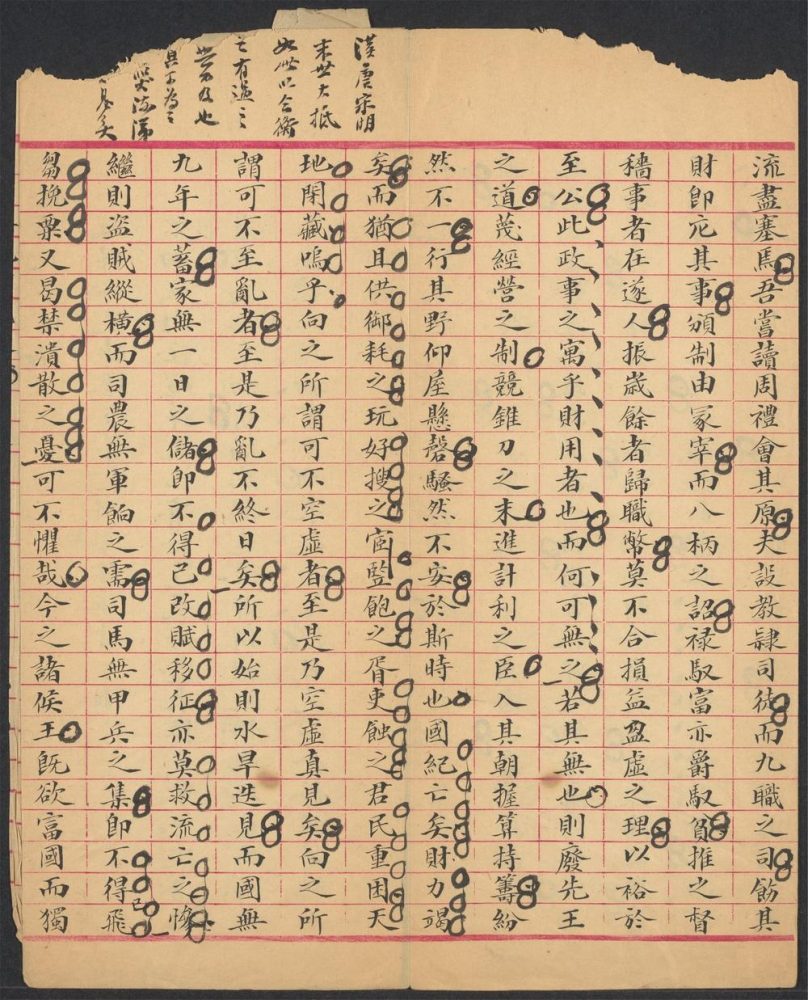 漢唐宋明
末世大抵
如此以合
亡有過之
及也
具不為之
哭流涕
矣
流盡塞馬吾嘗讀周禮會其原夫設教隸司徒而九職之司飭其
財卽庀其事頒制由冢宰而八柄之詔祿馭富亦爵馭貧推之督
穡事者在遂人振歲餘者歸職幣莫不合損益盈虛之理以裕於
至公此政事之寓乎財用者也而何可無之若其無也則廢先王
之道蔑經營之制競錐刀之末進計利之臣入其朝握算持籌紛
然不一行其野仰屋懸磬騷然不安於斯時也國紀亡矣財力竭
矣而猶且供御耗之玩好搜之宦監飽之胥吏蝕之君民重困天
地閉藏嗚乎向之所謂可不空虛者至是乃空虛真見矣向之所
謂可不至亂者至是乃亂不終日矣所以始則水旱迭見而國無
九年之蓄家無一日之儲卽不得已改賦移征亦莫救流亡之慘
繼則盜賊縱橫而司農無軍餉之需司馬無甲兵之集卽不得已飛
芻挽粟又曷禁潰散之憂可不懼哉今之諸侯王既欲富國而獨